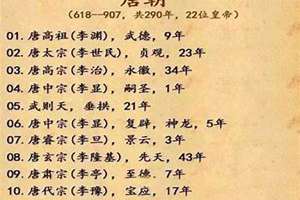 唐朝
(618--907，共290年，22位皇帝)
01. 唐高祖(李渊)，武德，9年
02. 唐太宗(李世民)，贞观，23年
03. 唐高宗(李治)，永徽，34年
04. 唐中宗(李显)，嗣圣，1年
05. 武则天，垂拱，21年
06. 唐中宗(李显)，复辟，神龙，5年
07. 唐睿宗(李旦)，景云，3年
08. 唐玄宗(李隆基)，先天，43年
09. 唐肃宗(李亨)，至德，7年
10. 唐代宗(李豫)，宝应，17年